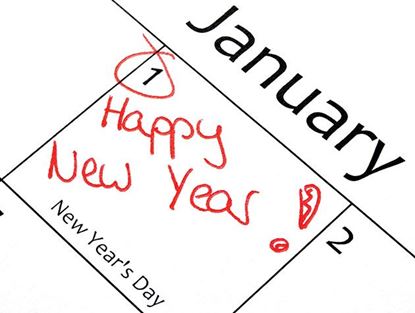 January
1
Happy
New Year!
New Year's Day
2